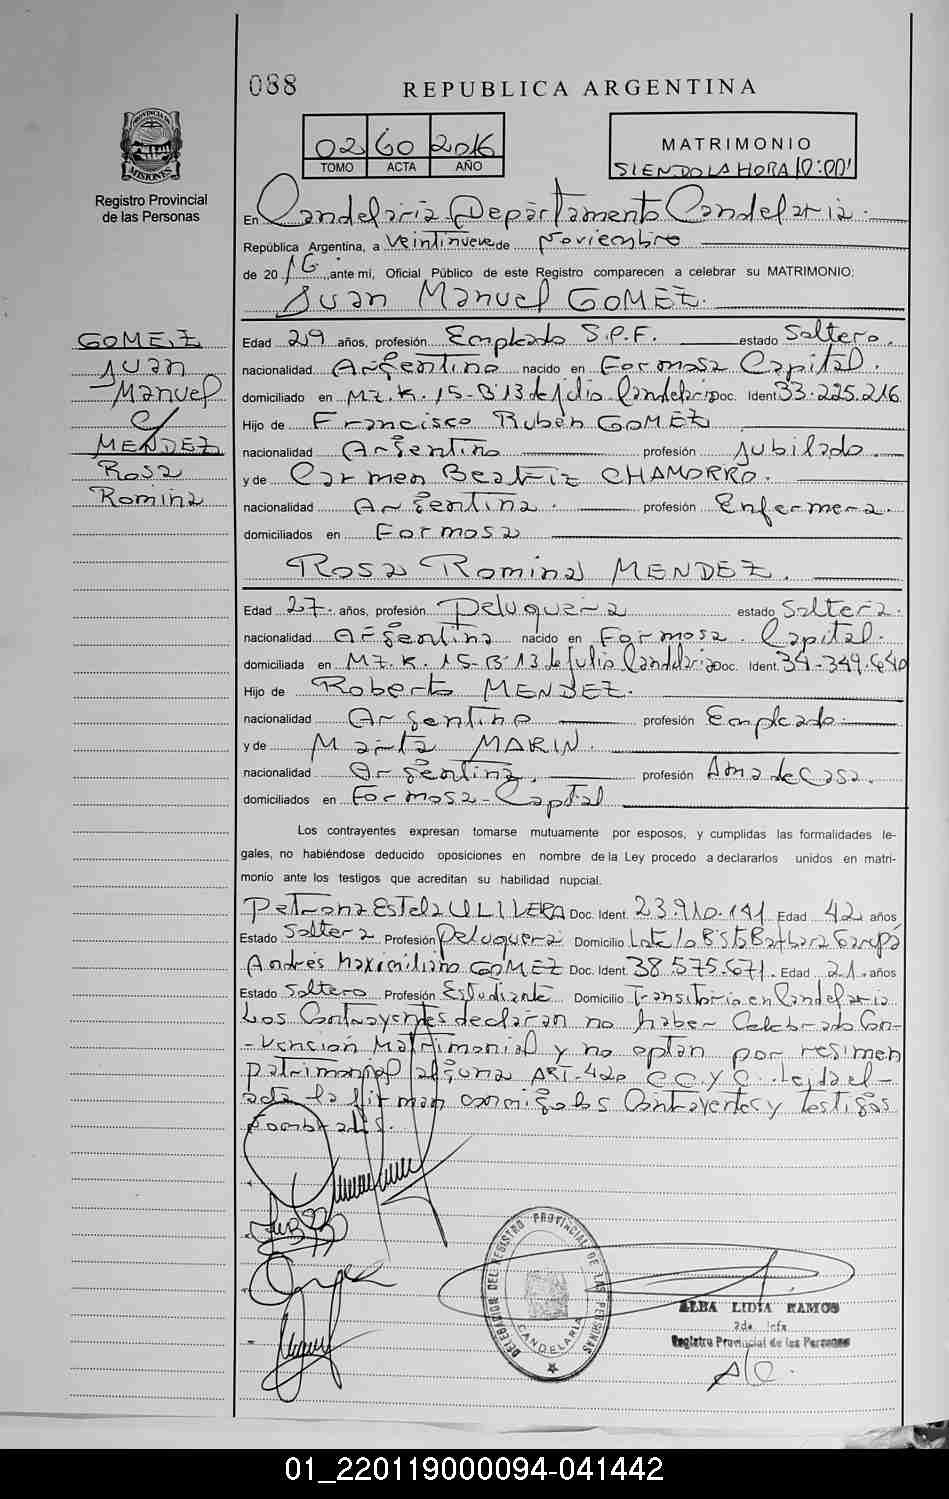 088
REPUBLICA ARGENTINA
PROVINCIA DE
MISIONES
Registro Provincial
de las Personas
02 60 2016
TOMO ACTA AÑO
MATRIMONIO
SIENDO LA HORA 10:00'
En Candelaria Departamento Candelaria
República Argentina, a Veintinueve de Noviembre
de 2016, ante mí, Oficial Público de este Registro comparecen a celebrar su MATRIMONIO:
Juan Manuel GOMEZ.
GOMEZ
Juan
Manuel
c/
MENDEZ
Rosa
Romina
Edad 29 años, profesión Empleado S.P.F. estado Soltero.
nacionalidad Argentino nacido en Formosa Capital.
domiciliado en Mz. K. 15-B° 13 de Julio Candelaria Doc. Ident. 33.225.216
Hijo de Francisco Ruben GOMEZ
nacionalidad Argentino profesión Jubilado
y de Carmen Beatriz CHAMORRO.
nacionalidad Argentina. profesión Enfermera.
domiciliados en Formosa
Rosa Romina MENDEZ.
Edad 27. años, profesión Peluquera estado Soltera.
nacionalidad Argentina nacido en Formosa. Capital.
domiciliada en Mz. K. 15-B° 13 de Julio Candelaria Doc. Ident. 34-349.640
Hijo de Roberto MENDEZ.
nacionalidad Argentino profesión Empleado.
y de Marta MARIN.
nacionalidad Argentina. profesión Ama de Casa.
domiciliados en Formosa-Capital
Los contrayentes expresan tomarse mutuamente por esposos, y cumplidas las formalidades le-
gales, no habiéndose deducido oposiciones en nombre de la Ley procedo a declararlos unidos en matri-
monio ante los testigos que acreditan su habilidad nupcial.
Petrona Estela ULIVERA Doc. Ident. 23.910.141 Edad 42 años
Estado Soltera Profesión Peluquera Domicilio Lote 10 B° Sta Barbara Garupá
Andrés Maximiliano GOMEZ Doc. Ident. 38.575.671. Edad 21. años
Estado Soltero Profesión Estudiante Domicilio Transitorio en Candelaria
Los Contrayentes declaran no haber Celebrado Con-
-vención Matrimonial y no optan por regimen
patrimonial alguno ART. 420 C.C.y C. Leida el
acta la firman conmigo los Contrayentes y testigos
nombrados.
DELEGACION DEL REGISTRO PROVINCIAL DE LAS PERSONAS
CANDELARIA
ALBA LIDIA RAMOS
2da. Jefa
Registro Provincial de las Personas
A/C.
01_220119000094-041442